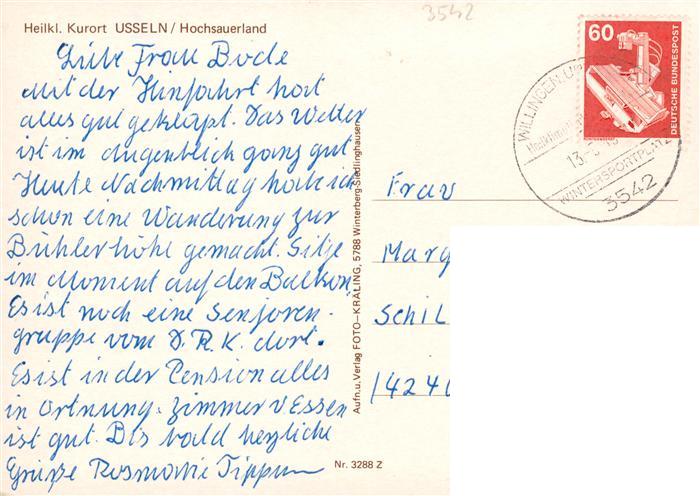 3542
Heilkl. Kurort USSELN / Hochsauerland
Liebe Frau Bode
mit der Hinfahrt hat
alles gut geklapt. Das Wetter
ist im Augenblick ganz gut
Heute Nachmittag hab ich
schon eine Wanderung zur
Bühlerhöhe gemacht. Sitze
im Moment auf den Balkon,
Es ist noch eine Senjoren-
gruppe vom D.R.K. dort.
Es ist in der Pension alles
in Ortnung. Zimmer u Essen
ist gut. Bis bald herzliche
Grüße Rosmarie
Nr. 3288 Z
Aufn. u. Verlag FOTO-KRÄLING, 5788 Winterberg-Siedlinghausen
60
DEUTSCHE BUNDESPOST
WILLINGEN, U
13.
WINTERSPORTPLATZ
3542
Frau
Marg
Schil